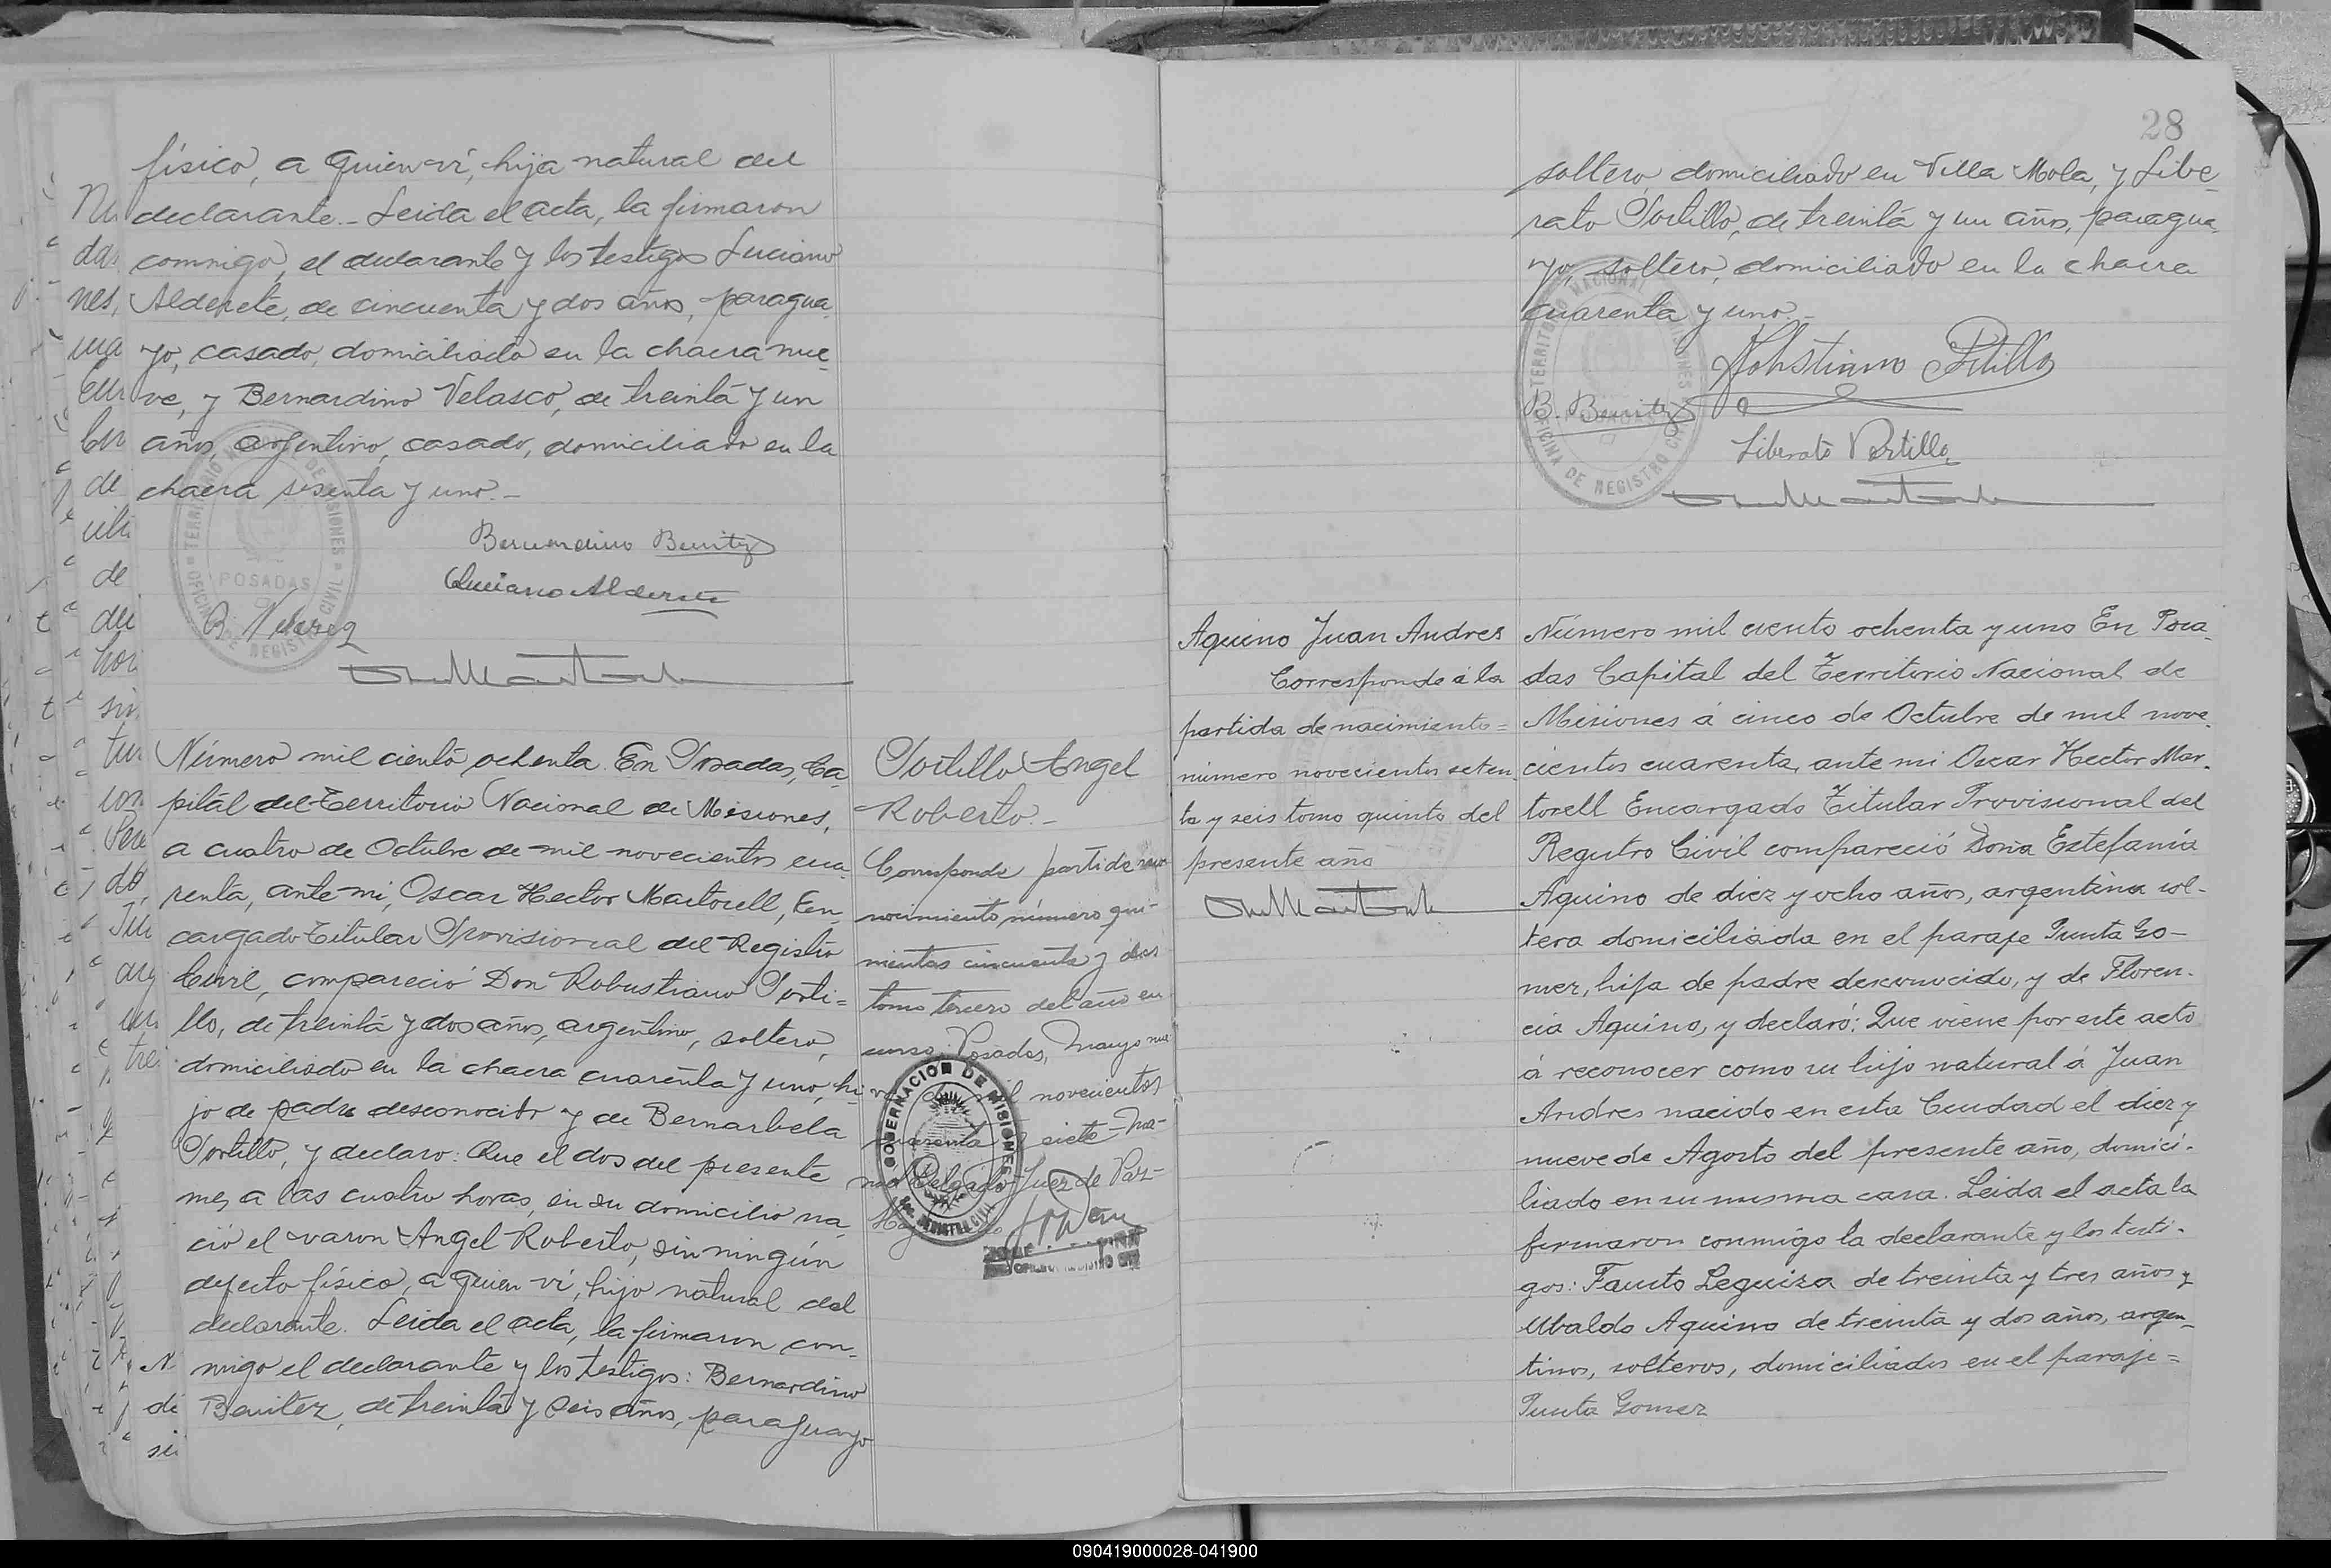 físico, a quien ví, hija natural del
declarante.- Leida el acta, la firmaron
conmigo, el declarante y los testigos Luciano
Alderete, de cincuenta y dos años, paragua
yo, casado, domiciliado en la chacra nue-
ve, y Bernardino Velasco, de treinta y un
años, argentino, casado, domiciliado en la
chacra sesenta y uno.-
Bernardino Benitez
Luciano Alderete
POSADAS
Número mil ciento ochenta. En Posadas, Ca-
pital del Territorio Nacional de Misiones,
a cuatro de Octubre de mil novecientos cua-
renta, ante mi, Oscar Hector Martorell, En
cargado Titular Provisional del Registro
Civil, compareció Don Robustiano Porti=
llo, de treinta y dos años, argentino, soltero,
domiciliado en la chacra cuarenta y uno, hi-
jo de padre desconocido y de Bernarbela
Portillo, y declaro: Que el dos del presente
mes, a las cuatro horas, en su domicilio na-
ció el varon Angel Roberto, sin ningún
defecto físico, a quien ví, hijo natural del
declarante. Leida el acta, la firmaron con-
migo el declarante y los testigos: Bernardino
Benitez, de treinta y seis años, paraguayo
Portillo Angel
Roberto.-
Corresponde partida reco
nocimiento número qui-
nientos cincuenta y dos
tomo tercero del año en
curso. Posadas, Mayo nue
novecientos
cuarenta y siete
Delgado Juez de Paz-
GOBERNACION DE MISIONES
28
soltero, domiciliado en Villa Mola, y Libe-
rato Portillo, de treinta y un años, paragua
yo, soltero, domiciliado en la chacra
cuarenta y uno.-
B. Benitez
Liberato Portillo
OFICINA DE REGISTRO CIVIL
Aquino Juan Andres
Corresponde á la
partida de nacimiento=
número novecientos seten
ta y seis tomo quinto del
presente año
Número mil ciento ochenta y uno En Posa-
das Capital del Territorio Nacional de
Misiones á cinco de Octubre de mil nove-
cientos cuarenta, ante mi Oscar Hector Mar-
torell Encargado Titular Provisional del
Registro Civil compareció Doña Estefanía
Aquino de diez y ocho años, argentina sol-
tera domiciliada en el paraje Punta Go-
mez, hija de padre desconocido, y de Floren-
cia Aquino, y declaró: Que viene por este acto
á reconocer como su hijo natural á Juan
Andres nacido en esta Ciudad el diez y
nueve de Agosto del presente año, domici-
liado en su misma casa. Leida el acta la
firmaron conmigo la declarante y los testi-
gos: Fausto Leguiza de treinta y tres años y
Ubaldo Aquino de treinta y dos años, argen-
tinos, solteros, domiciliados en el paraje=
Punta Gomez
090419000028-041900